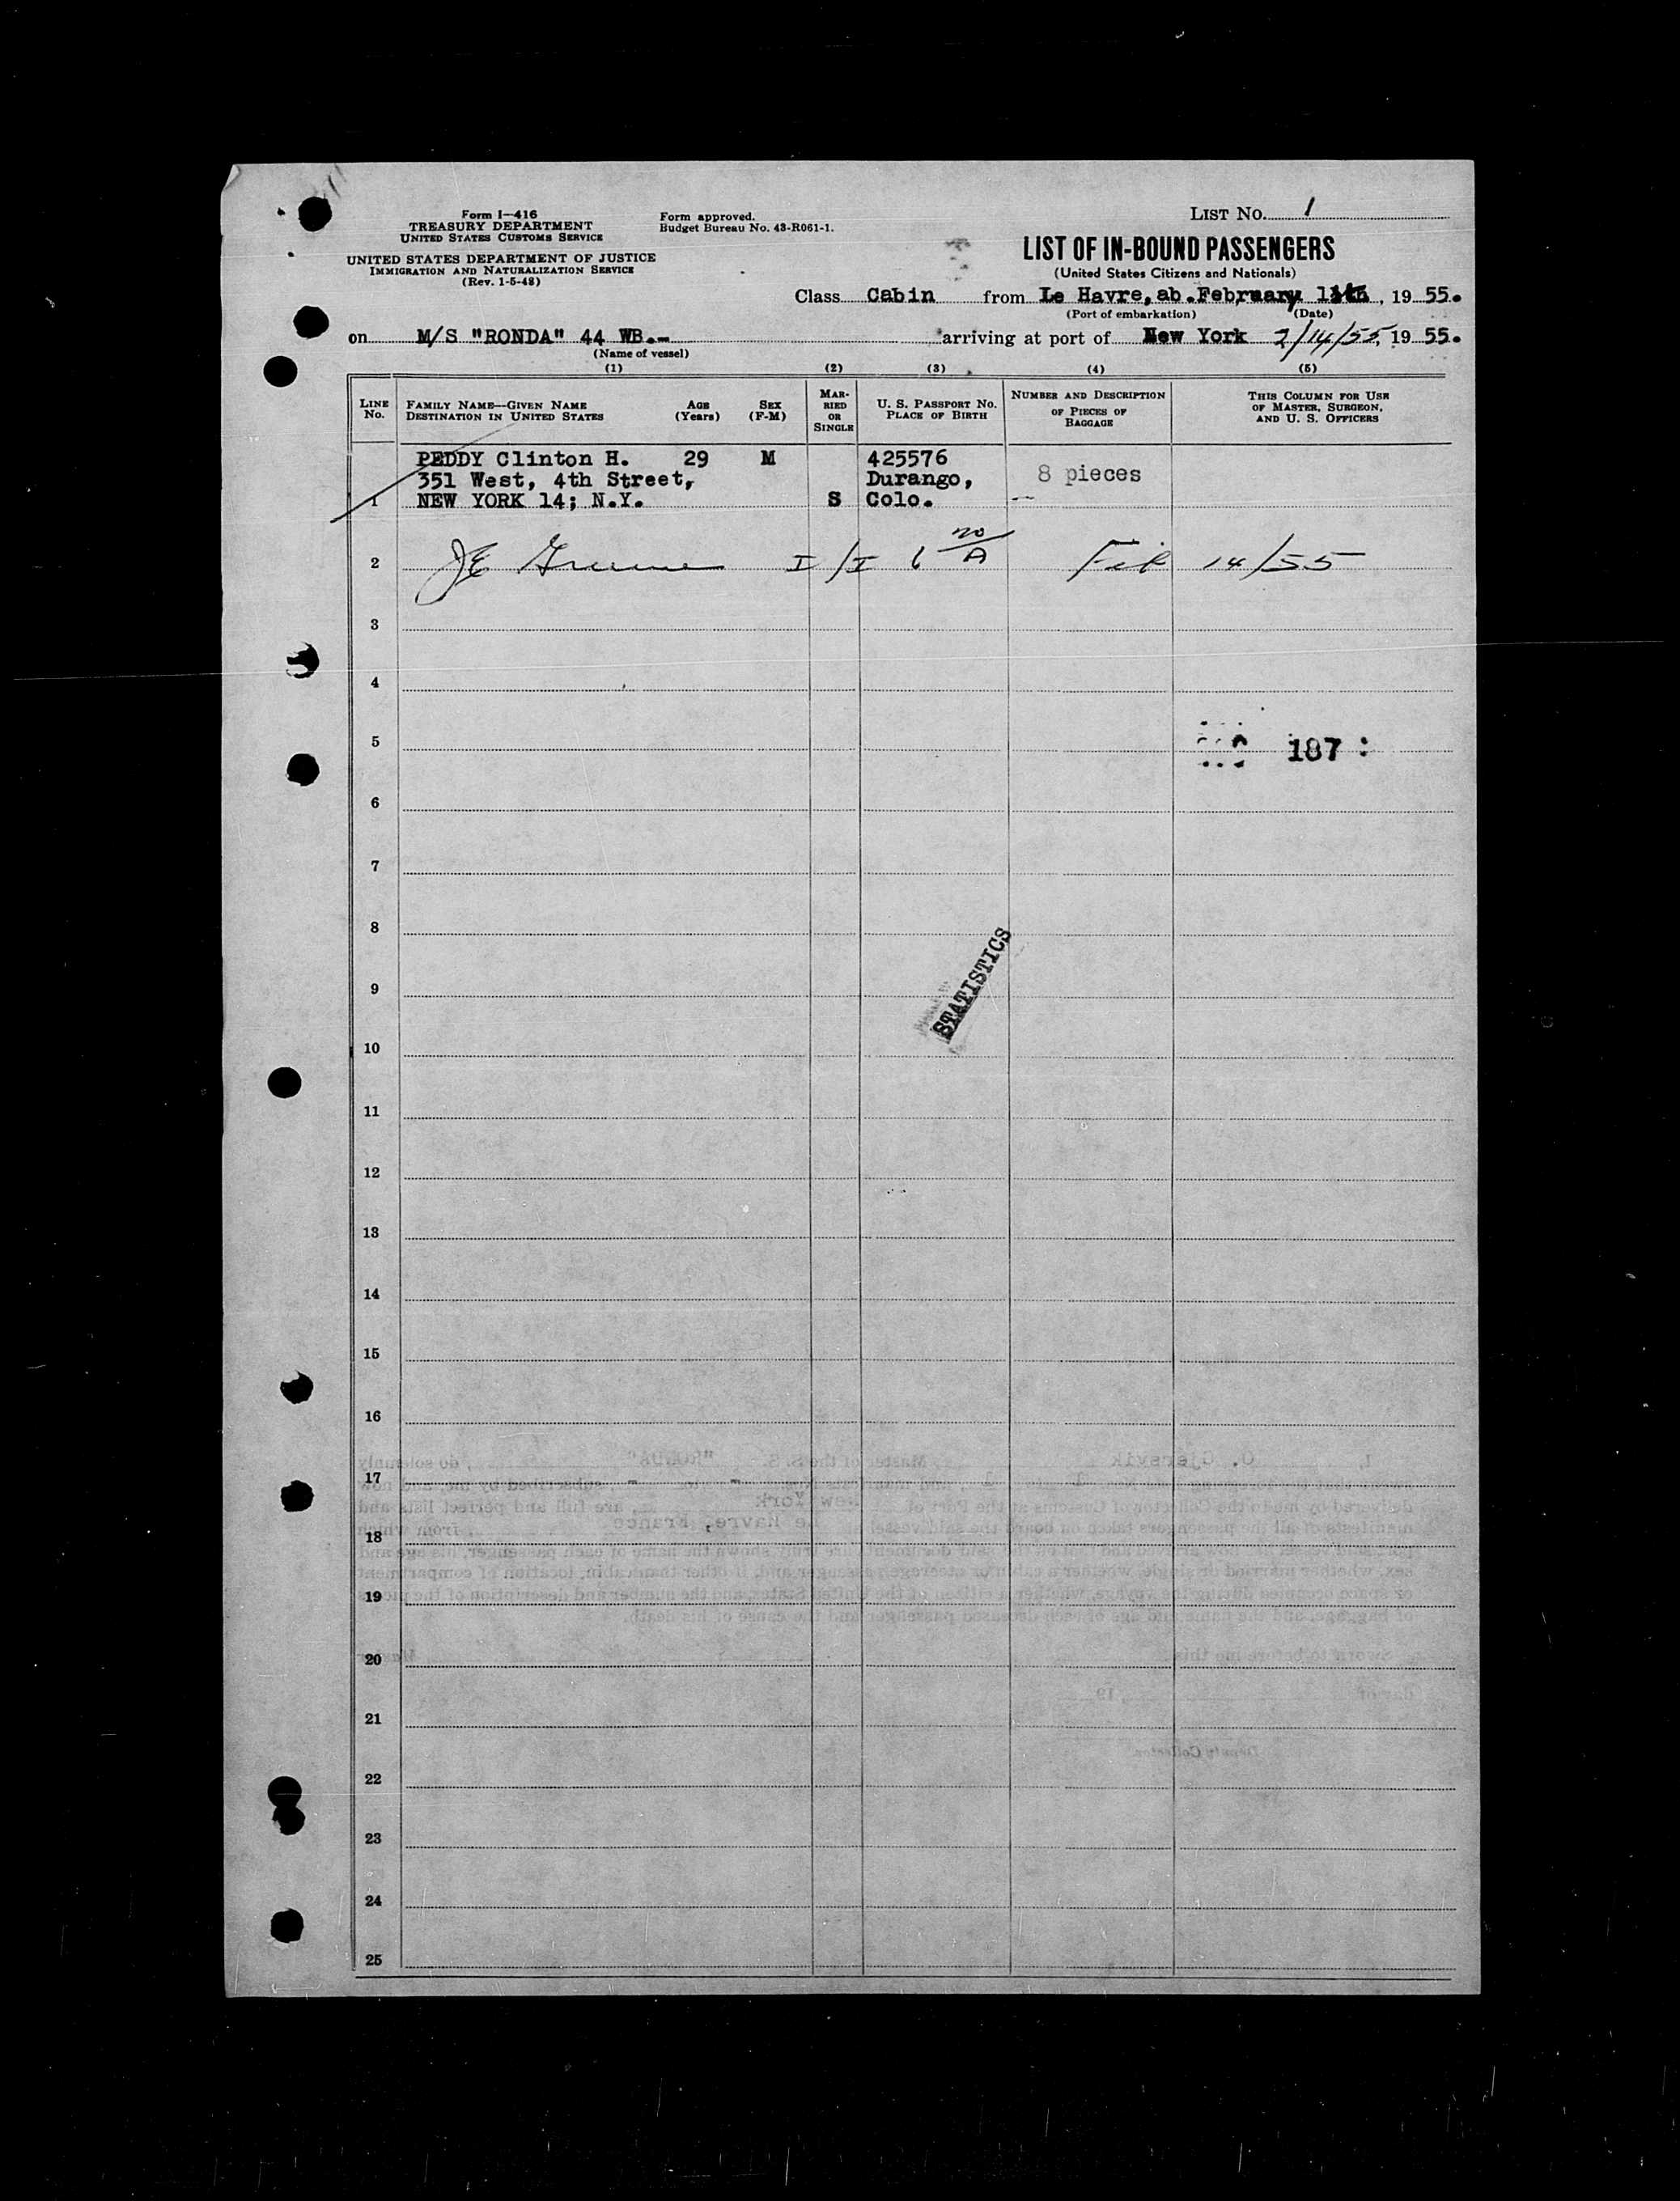 Form I—416
TREASURY DEPARTMENT
UNITED STATES CUSTOMS SERVICE
UNITED STATES DEPARTMENT OF JUSTICE
IMMIGRATION AND NATURALIZATION SERVICE
(Rev. 1-5-48)
Form approved.
Budget Bureau No. 43-R061-1.
LIST NO. 1
LIST OF IN-BOUND PASSENGERS
(United States Citizens and Nationals)
Class Cabin from Le Havre, ab. February, 19 55.
(Port of embarkation) (Date)
on M/S "RONDA" 44 WB.- arriving at port of New York 2/14/55, 19 55.
(Name of vessel)
(1) (2) (3) (4) (5)
LINE No. FAMILY NAME—GIVEN NAME DESTINATION IN UNITED STATES AGE (Years) SEX (F-M) MARRIED OR SINGLE U. S. PASSPORT NO. PLACE OF BIRTH NUMBER AND DESCRIPTION OF PIECES OF BAGGAGE THIS COLUMN FOR USE OF MASTER, SURGEON, AND U. S. OFFICERS
PEDDY Clinton H. 29 M 425576
351 West, 4th Street, Durango, 8 pieces
1 NEW YORK 14; N.Y. S Colo.
2 I/I Feb 14/55
3
4
5 187
6
7
8
STATISTICS
9
10
11
12
13
14
15
16
17
18
19
20
21
22
23
24
25